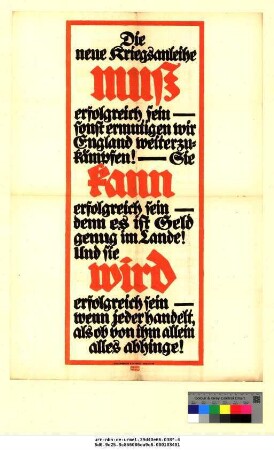 Die
neue Kriegsanleihe
muß
erfolgreich sein —
sonst ermutigen wir
England weiterzu-
kämpfen! — Sie
kann
erfolgreich sein —
denn es ist Geld
genug im Lande!
Und sie
wird
erfolgreich sein —
wenn jeder handelt,
als ob von ihm allein
alles abhinge!